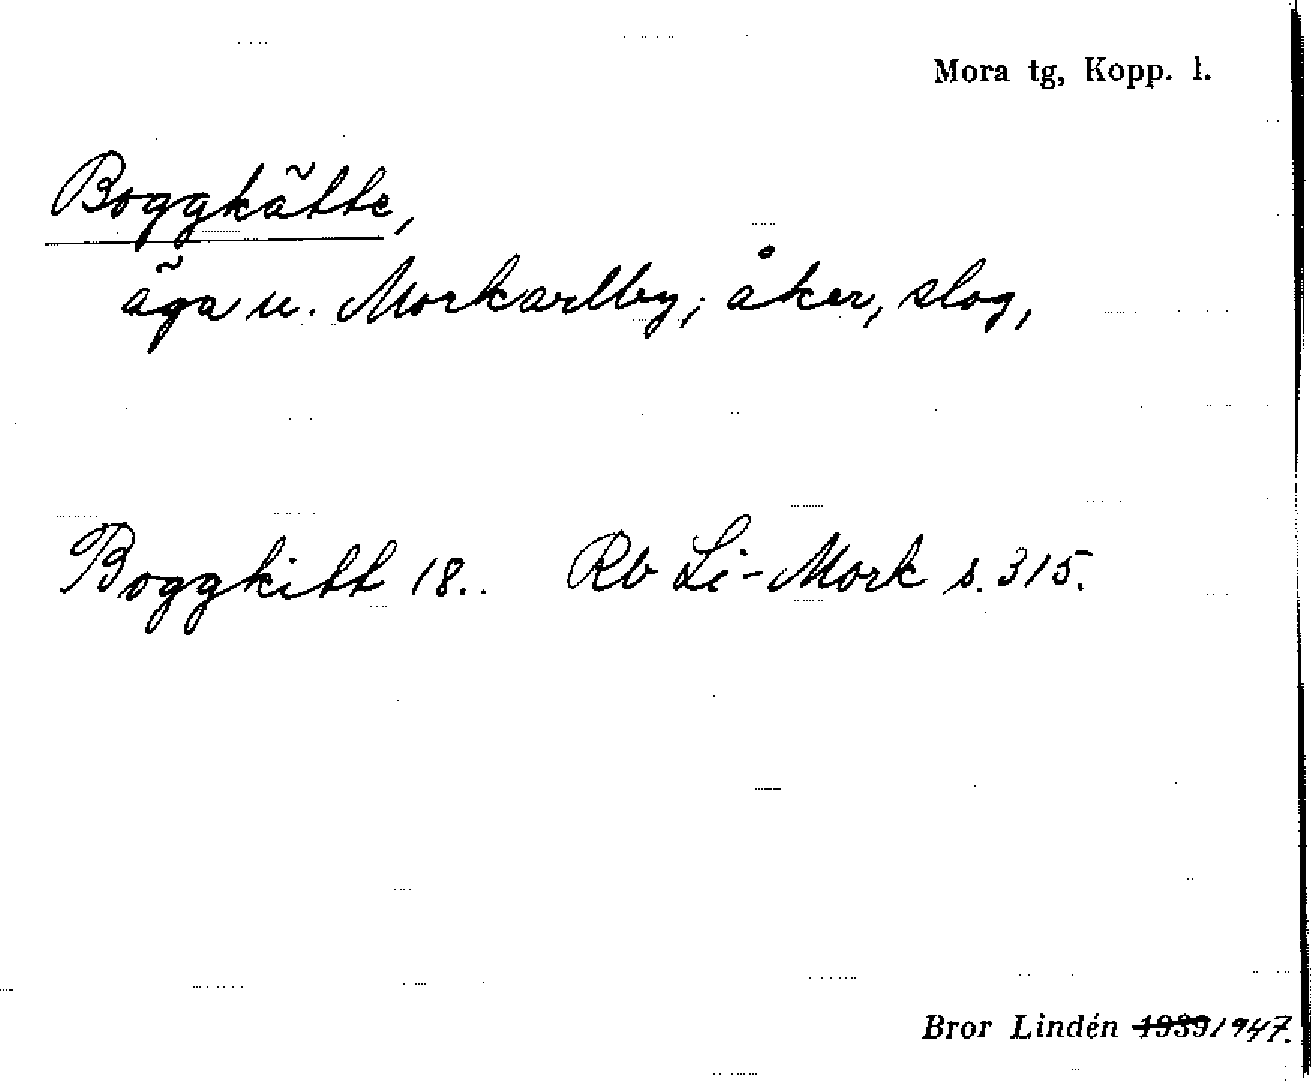 Mora tg, Kopp. l.
Boggkätte,
äga u. Morkarlby; åker, slog,
Boggkitt 18.. Rb Li-Mork s. 315.
Bror Lindén 1939 1947.